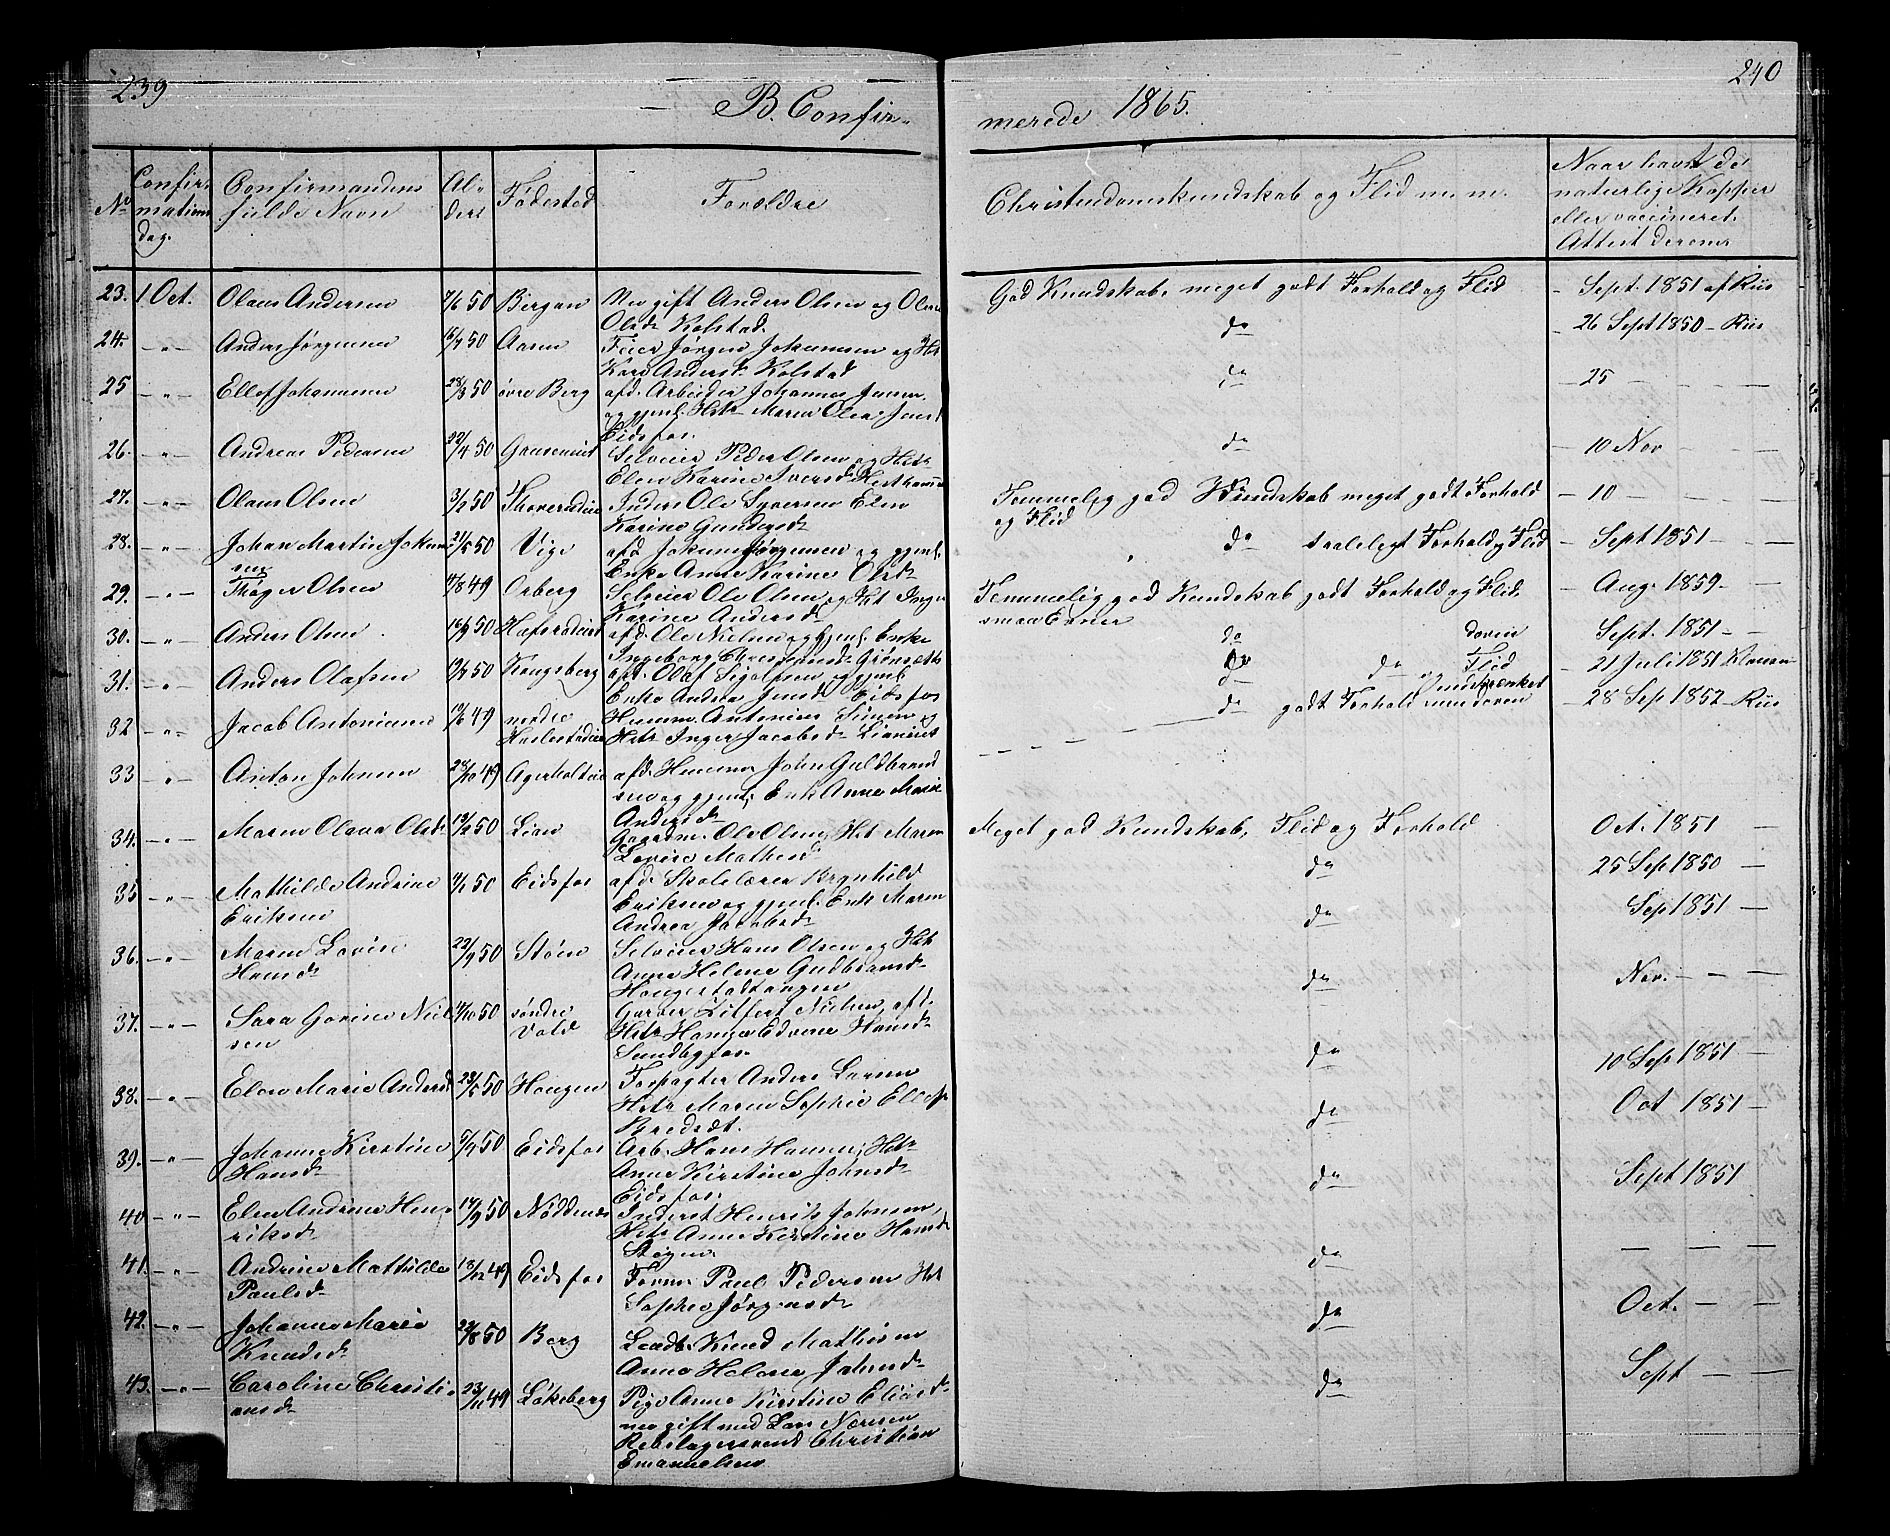 239
B. Confir-
merede 1865.
240
No
Confirmations
dag.
Confirmandens
fulde Navn
Al-
der
Fødested
Forældre
Christendomskundskab og Flid m. m.
Naar havt de
naturlige Kopper
eller vaccineret.
Attest derom
23. 1 Oct. Olaus Andersen 7/6 50 Bergan Nu gift Anders Olsen og Olene
Olsdr Kolstad
God Kundskab, meget godt Forhold og Flid - Sept. 1851 af Riis
24. -"- Anders Jørgensen 16/7 50 Aasen Feier Jørgen Johannesen og Hst
Kari Andersdr Kolstad
do - 26 Sept 1850 - Riis
25 -"- Ellef Johannesen 28/3 50 øvre Berg afd. Arbeider Johannes Jensen
og gjenl. Hstr Maren Olea Jensd
Eidsfos.
do - 25 - - -
26. -"- Andreas Pedersen 22/4 50 Selveier Peder Olsen og Hstr
Elen Karine Iversdr
do - 10 Nov - - -
27. -"- Olaus Olsen 3/2 50 Thorerudeie Inders Ole Syversen Elen
Karine Gundersdr
Temmelig god Kundskab meget godt Forhold
og Flid - 10 - - -
28. -"- Johan Martin Johan
sen 21/5 50 Vige afd. Johan Jørgensen og gjenl.
Enke Anne Karine Olsdr
do taaleligt Forhold og Flid - Sept 1851 - -
29. -"- Thøger Olsen 11/8 49 Orberg Selveier Ole Olsen og Hst Inger
Karine Andersdr
Temmelig god Kundskab godt Forhold og Flid
smaa Evner - Aug. 1859 - -
30. -"- Anders Olsen 16/9 50 afd. Ole Nielsen og Gjenl. Enke
Ingeborg
do doven
Flid Sept. 1851 - -
31. -"- Anders Olafsen 19/7 50 Kongsberg afd. Olaf og gjenl
Enke Andrea Jensdr Eidsfos
do do og indskrænket - 21 Juli 1851
32 -"- Jacob Antonisen 19/6 49 nordre
Haslestadeie Huusm. Antonius Simen og
Hstr Inger Jacobsdr
do godt Forhold men doven - 28 Sep 1852 - Riis
33 -"- Anton Johnsen 28/10 49 Agerholteie afd. Huusm. John Guldbrand
sen og gjenl. Enk Anne Marie
Andersdr
- - - - -
34. -"- Maren Olava Olsdr 13/2 50 Lian Gaardm. Ole Olsen, Hst Maren
Lovise Mathisdr
Meget god Kundskab, Flid og Forhold Oct. 1851 -
35 -"- Mathilde Andrine
Eriksen 4/1 50 Eidsfos afd. Skolelærer Brynhild
Eriksen og gjenl. Enk Maren
Andrea Jacobsdr
do 25 Sep 1850 -
36. -"- Maren Lovise
Hansdr 22/9 50 Støen Selveier Hans Olsen og Hst
Anne Helene Gudbrandsdr
Haugestadtangen
do Sep 1851 -
37. -"- Sara Gorine Niel
sen 11/10 50 søndre
Vold Garver Nielsen, afd.
Hstr Edvine Hansdr
Sundbyfos.
do Nov. - - -
38. -"- Elen Marie Andersd 23/5 50 Haugen Forpagter Anders Larsen
Hstr Maren Sophie Ellefs
Bredsdt.
do 10 Sep 1851 -
39. -"- Johanne Kirstine
Hansdr 5/7 50 Eidsfos Arb. Hans Hansen, Hst
Anne Kirstine Johnsdr
Eidsfos.
do Oct 1851 -
40 -"- Elen Andrine Hen
riksdr 14/9 50 Nøddenes Inderst Henrik Johnsen,
Hstr Anne Kirstine Hansdr
do Sept 1851
41. -"- Andrine Mathilde
Paulsdr 18/12 49 Eidsfos Paul Pedersen Hst
Sophie Jørgensdr
do - - -
42. -"- Johanne Marie
Knudsdr 22/8 50 Berg Leidb. Knud Mathisen
Anne Helene Johnsdr
do Oct. - -
43. -"- Caroline Christi
ansdr 23/11 49 Løkeberg Pige Anne Kirstine Eliasdr
nu gift med Lars Næresen
Christian
Emanuelsen
do Sept - -